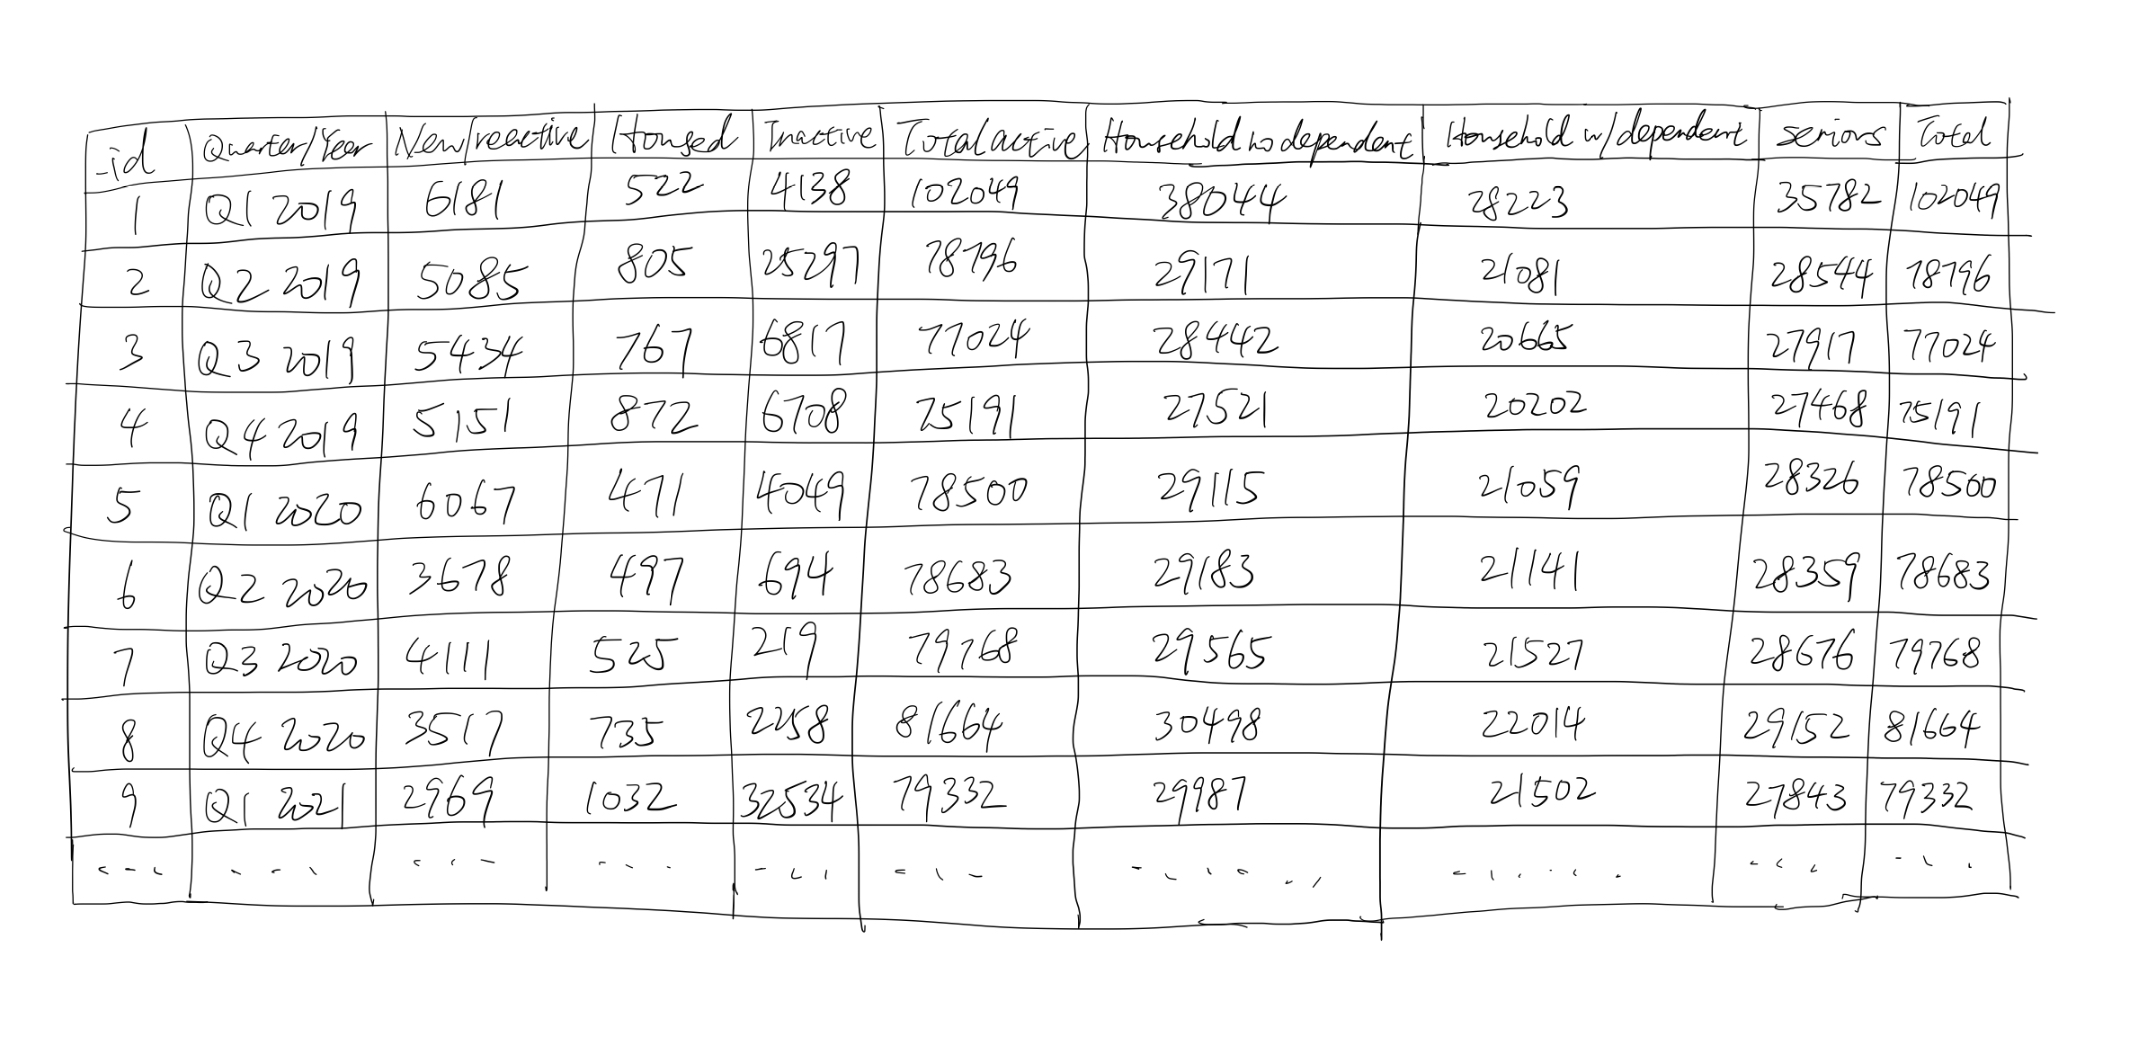 _id Quarter/Year New/reactive Housed Inactive Total active Household no dependent Household w/dependent seniors Total
1 Q1 2019 6181 522 4138 102049 38044 28223 35782 102049
2 Q2 2019 5085 805 25297 78796 29171 21081 28544 78796
3 Q3 2019 5434 767 6817 77024 28442 20665 27917 77024
4 Q4 2019 5151 872 6708 75191 27521 20202 27468 75191
5 Q1 2020 6067 471 4049 78500 29115 21059 28326 78500
6 Q2 2020 3678 497 694 78683 29183 21141 28359 78683
7 Q3 2020 4111 525 219 79768 29565 21527 28676 79768
8 Q4 2020 3517 735 2258 81664 30498 22014 29152 81664
9 Q1 2021 2969 1032 32534 79332 29987 21502 27843 79332
... ... ... ... ... ... ..... ...... ... ...